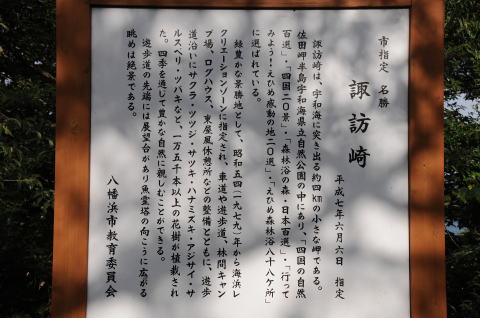 市指定 名勝
諏訪崎
平成七年六月六日 指定
諏訪崎は、宇和海に突き出る約四kmの小さな岬である。
佐田岬半島宇和海県立自然公園の中にあり、「四国の自然
百選」・「四国二〇景」・「森林浴の森・日本百選」・「行って
みよう!・えひめ感動の地二〇選」・「えひめ森林浴八十八ケ所」
に選ばれている。
緑豊かな景勝地として、昭和五四(一九七九)年から海浜レ
クリエーションゾーンに指定され、車道や遊歩道、林間キャン
プ場、ログハウス、東屋風休憩所などの整備とともに、遊歩
道沿いにサクラ・ツツジ・サツキ・ハナミズキ・アジサイ・サ
ルスベリ・ツバキなど、一万五千本以上の花樹が植栽され
た。四季を通して豊かな自然に親しむことができる。
遊歩道の先端には展望台があり魚霊塔の向こうに広がる
眺めは絶景である。
八幡浜市教育委員会